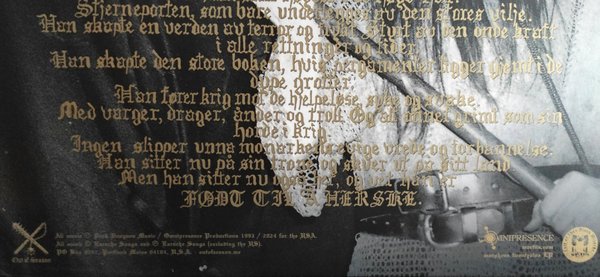 Stjerneporten, som bare underlegges av den stores vilje.
Han skapte en verden av terror og, styrt av den onde kraft
i alle retninger og tider.
Han skapte den store boken, hvis pergamenter ligger gjemt i de
dype grotter.
Han fører krig mot de hjelpeløse, syke og svake.
Med varger, drager, ånder og troll. Og alt annet grumt som sin
horde i krig.
Ingen slipper unna monarkets evige vrede og forbannelse.
Han sitter nu på sin trone og skuer ut på sitt land
Men han sitter nu, og
FØDT TIL Å HERSKE
All music © Dark Dungeon Music / Omnipresence Productions 1993 / 2024 for the USA.
All music © (including by US).
PO Box, Portland Maine 04104, USA.
Out of Season
OMNIPRESENCE
EP